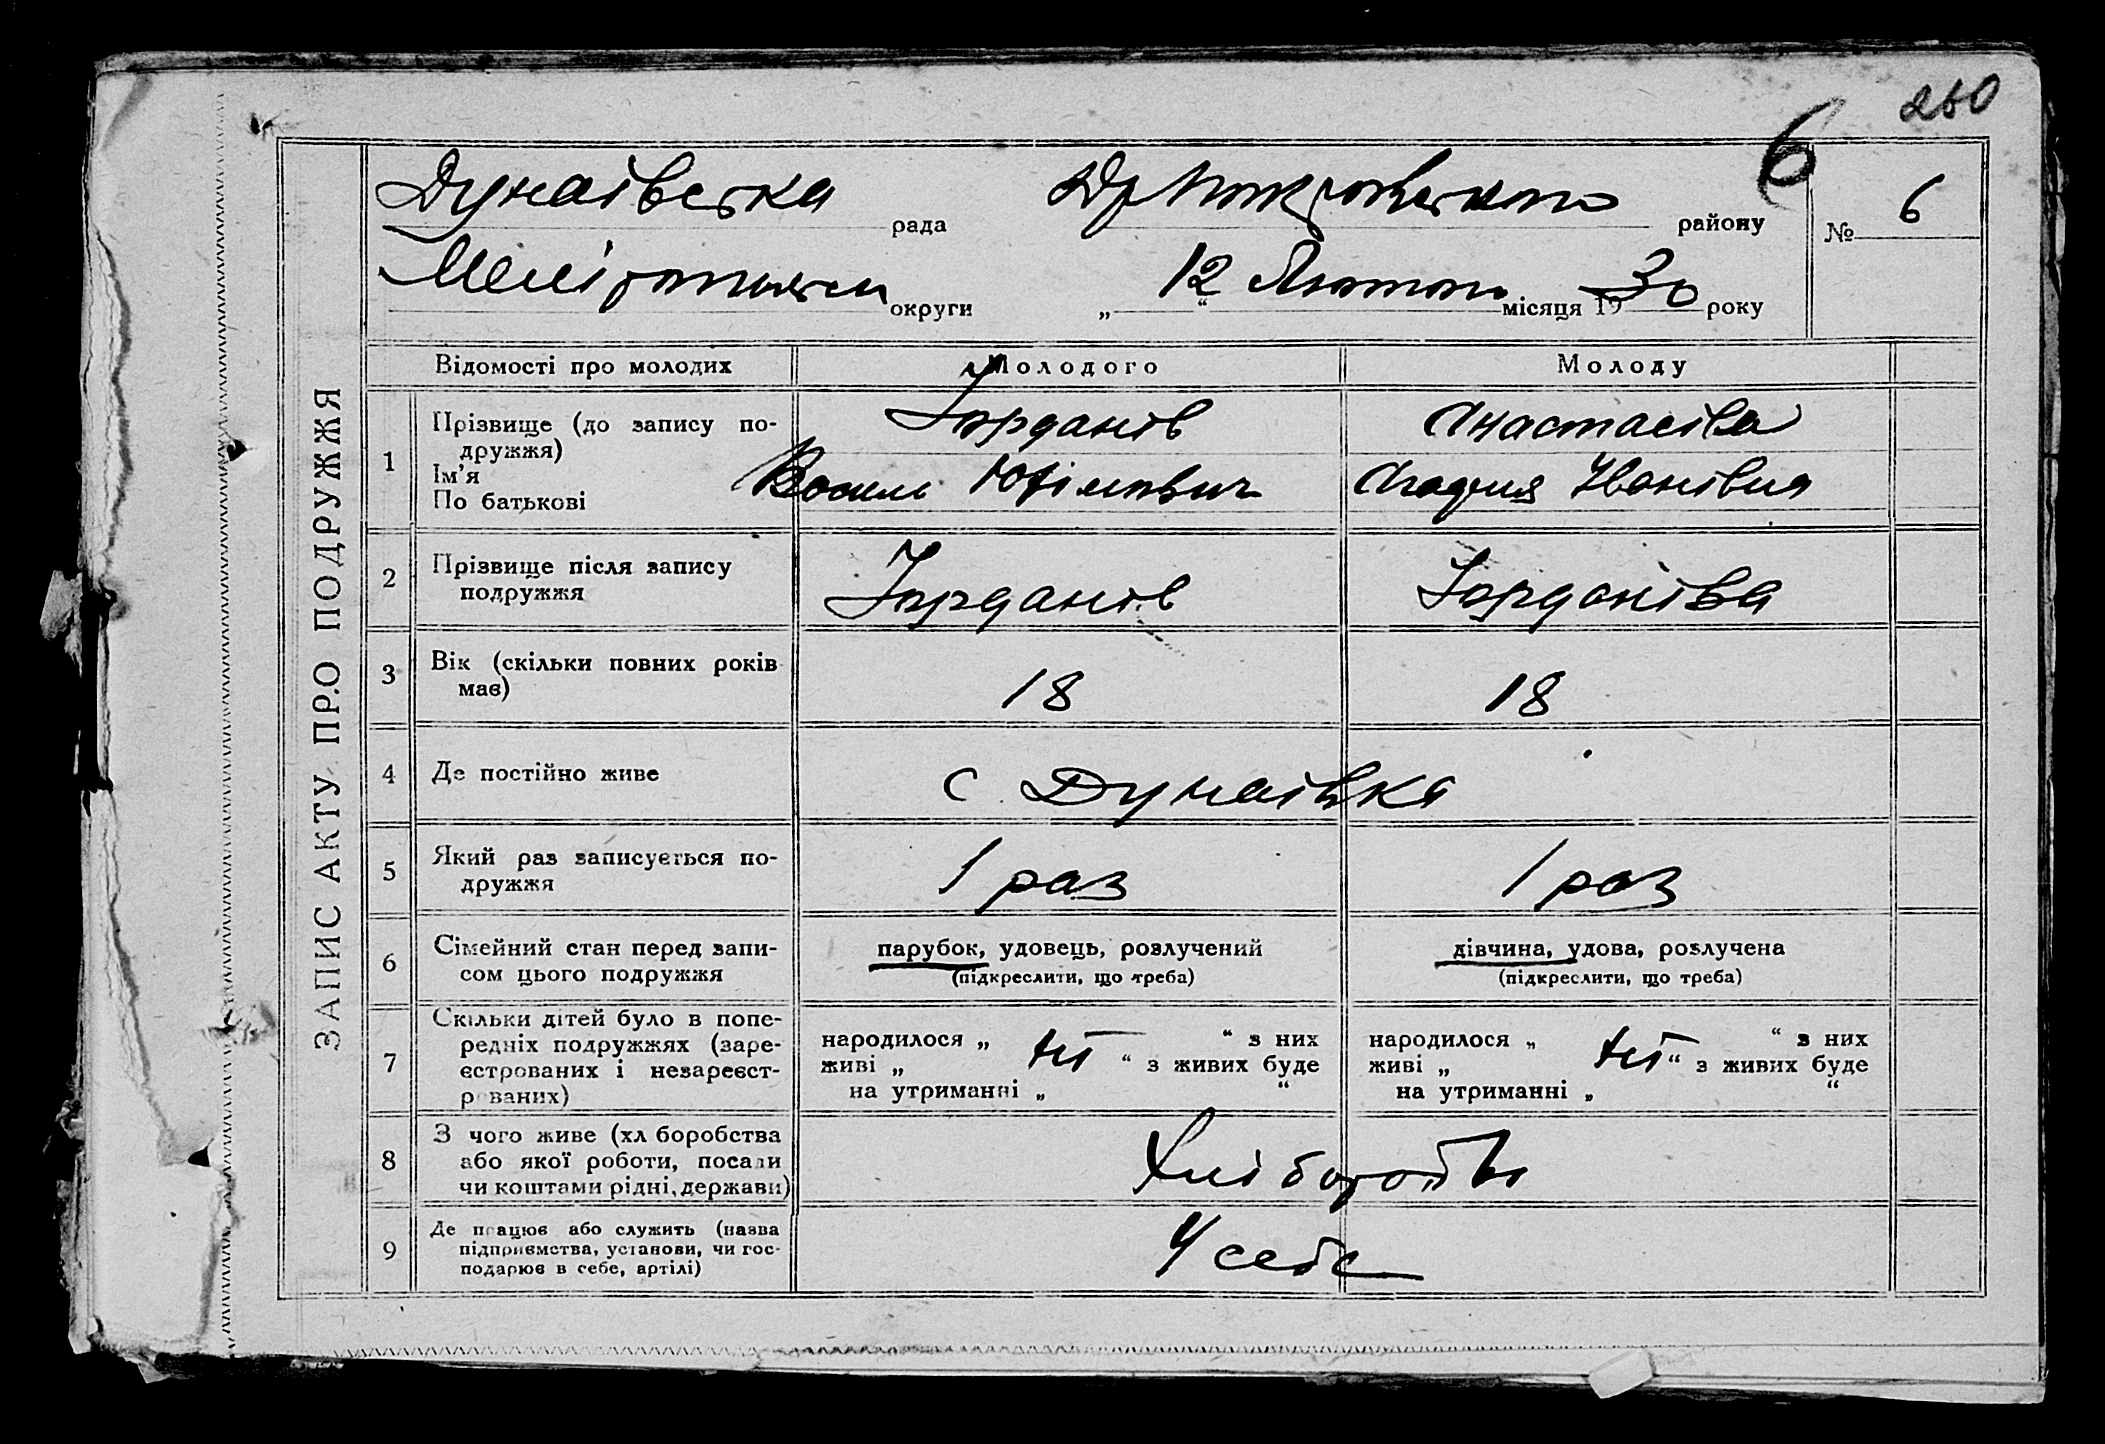 260
6
Дунаївська рада Др Покровського району № 6
Мелітопольськ округи „ 12 “ Лютого місяця 1930 року
ЗАПИС АКТУ ПРО ПОДРУЖЖЯ
Відомості про молодих Молодого Молоду
1 Прізвище (до запису по- Іорданів Анастасіва
дружжя)
Ім'я Василь Юхімович Иванівна
По батькові
2 Прізвище після запису Іорданів Іорданіва
подружжя
3 Вік (скільки повних років 18 18
має)
4 Де постійно живе с. Дунаївка
5 Який раз записується по- 1 раз 1 раз
дружжя
6 Сімейний стан перед запи- парубок, удовець, розлучений дівчина, удова, розлучена
сом цього подружжя (підкреслити, що треба) (підкреслити, що треба)
7 Скільки дітей було в попе-
редніх подружжях (заре-
єстрованих і незареєст-
рованих)
народилося „ “ з них
живі „ ні “ з живих буде
на утриманні „ “
народилося „ “ з них
живі „ ні “ з живих буде
на утриманні „ “
8 З чого живе (хліборобства Хліборобтв
або якої роботи, посади
чи коштами рідні, держави)
9 Де працює або служить (назва У себе
підприємства, установи, чи гос-
подарює в себе, артілі)